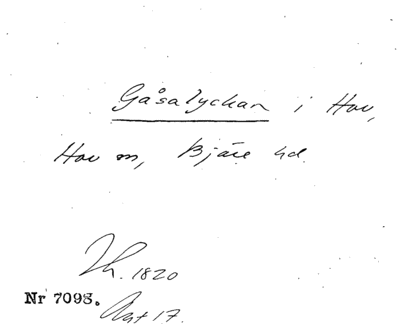 Gåsalyckan i Hov,
Hov sn, Bjäre hd.
Lh. 1820
Nr 7093.
Akt 17.